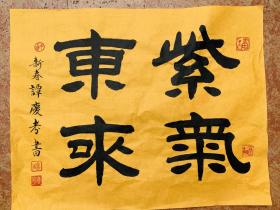 紫氣
東來
新春譚慶孝書